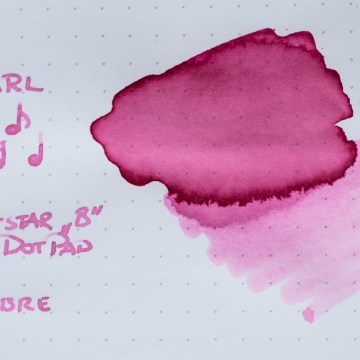 ARL
STAR „B"
DOT PAD
BRE